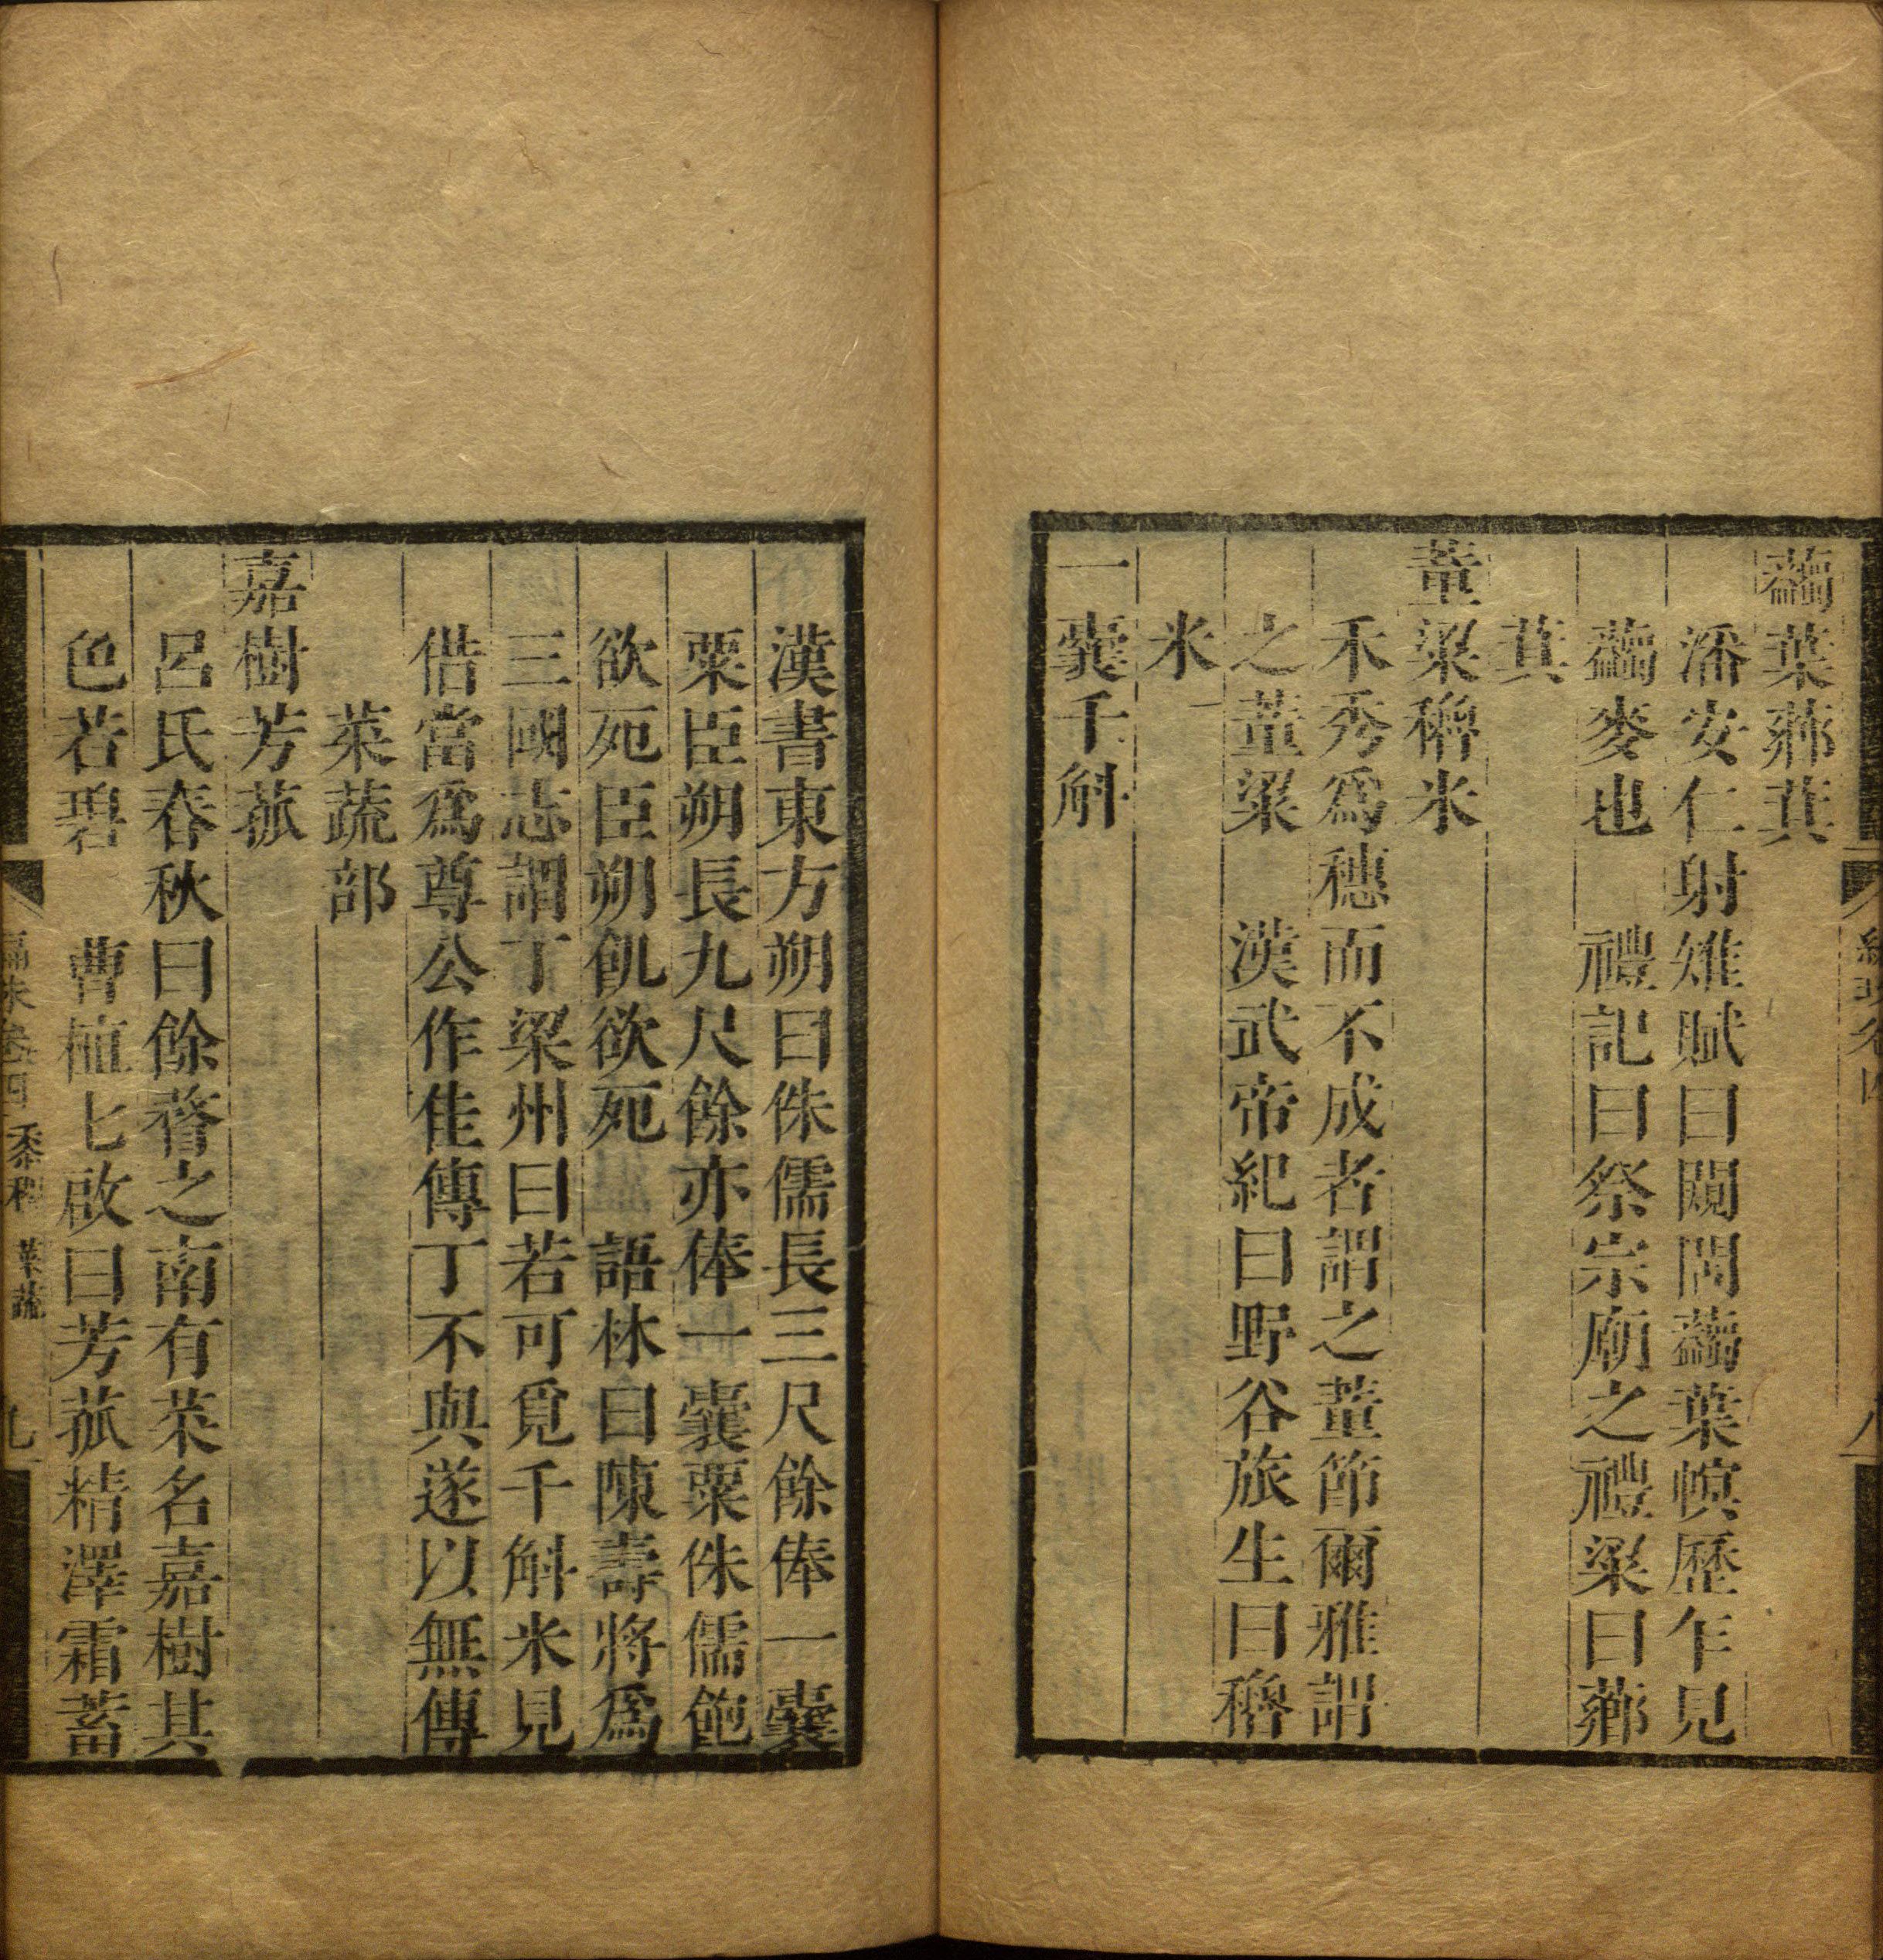 䕩葉薌萁
潘安仁射雉賦曰闚閭䕩葉幎歷乍見
䕩麥也　禮記曰祭宗廟之禮粱曰薌
萁
董粱穭米
禾秀為穗而不成者謂之董節爾雅謂
之董粱　漢武帝紀曰野谷旅生曰穭
米
一囊千斛
漢書東方朔曰侏儒長三尺餘俸一囊
粟臣朔長九尺餘亦俸一囊粟侏儒飽
欲死臣朔飢欲死　語林曰陳壽將為
三國志謂丁梁州曰若可覓千斛米見
借當為尊公作佳傳丁不與遂以無傳
菜蔬部
嘉樹芳菰
呂氏春秋曰餘瞀之南有菜名嘉樹其
色若碧　曹植七啟曰芳菰精澤霜蓄
卷四　黍稷　菜蔬　九